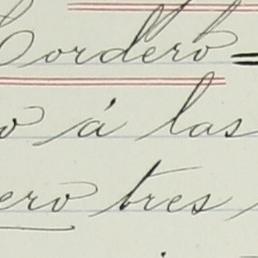 Cordero =
o á las
ero tres